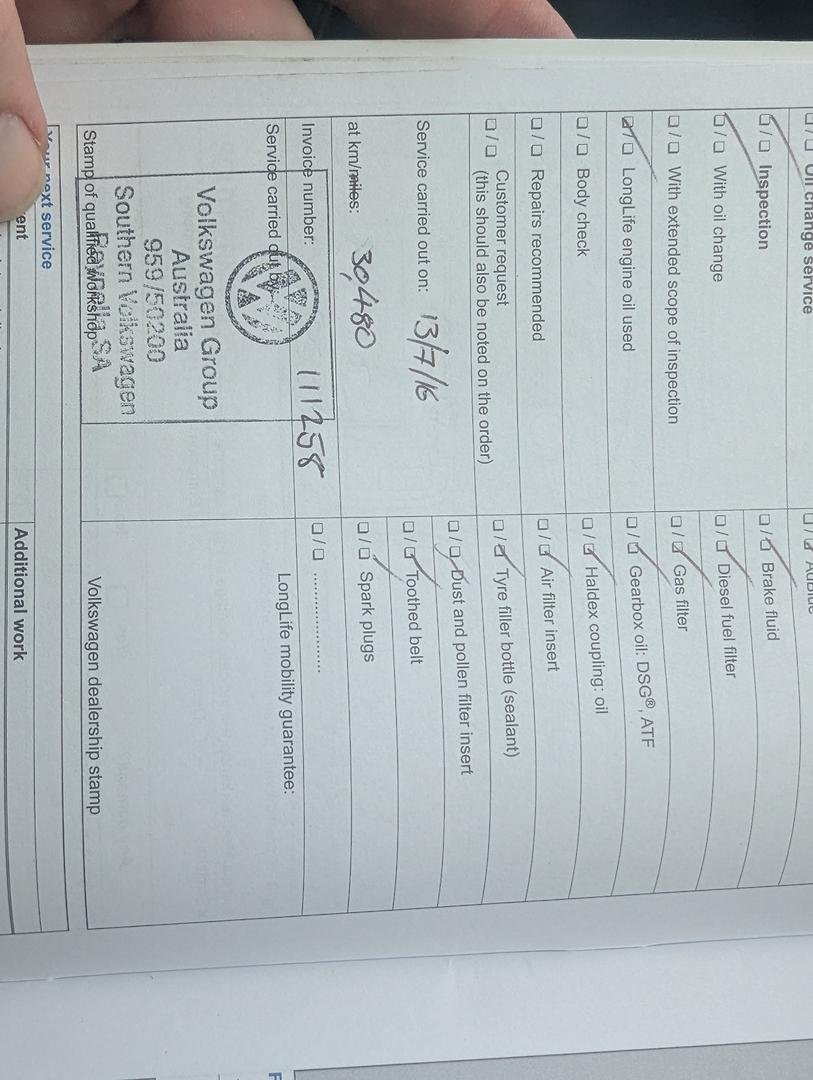 Oil change service
Inspection
With oil change
With extended scope of inspection
LongLife engine oil used
Body check
Repairs recommended
Customer request
(this should also be noted on the order)
Service carried out on: 13/7/16
at km/miles: 30,480
Invoice number: 111258
Service carried out by:
Volkswagen Group
Australia
959/50200
Southern Volkswagen
Reynella SA
Stamp of qualified workshop
AdBlue
Brake fluid
Diesel fuel filter
Gas filter
Gearbox oil: DSG®, ATF
Haldex coupling: oil
Air filter insert
Tyre filler bottle (sealant)
Dust and pollen filter insert
Toothed belt
Spark plugs
....................
LongLife mobility guarantee:
Volkswagen dealership stamp
Your next service
ent
Additional work